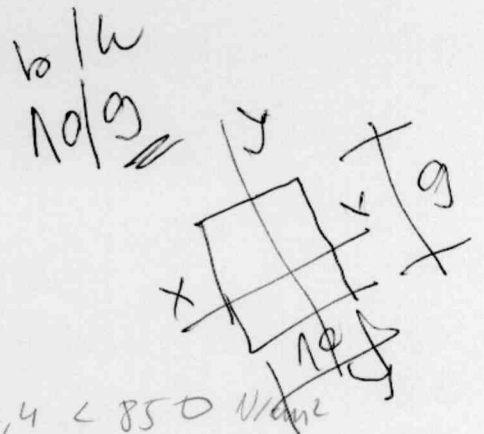 b/h
10/9
y
x
x
9
10
y
,4 < 850 N/cm²